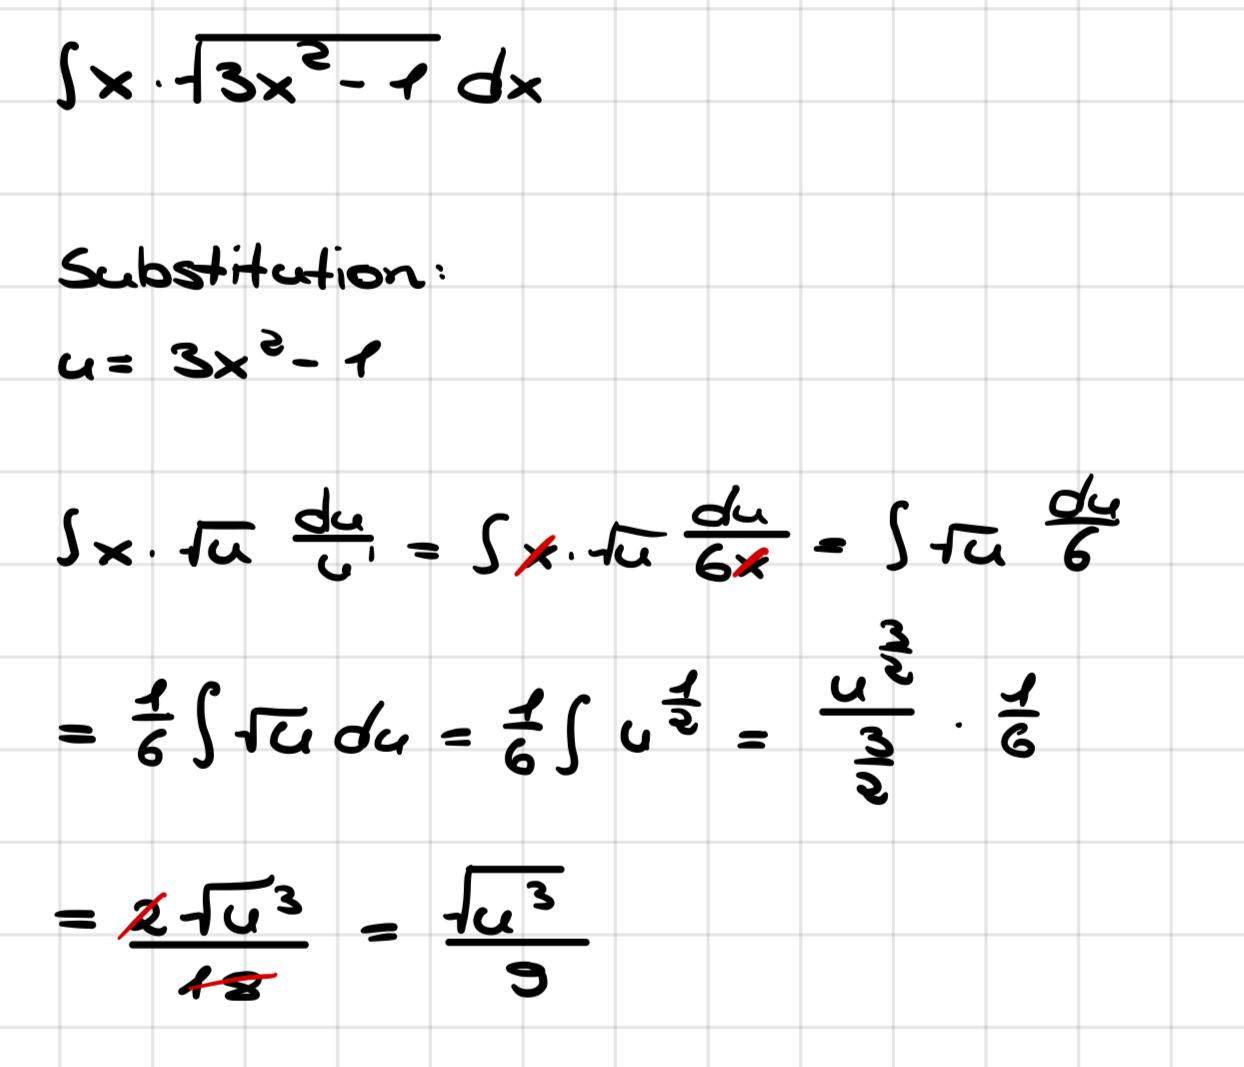 ∫ x · √(3x² - 1) dx
Substitution:
u = 3x² - 1
∫ x · √u du/u' = ∫ x · √u du/6x = ∫ √u du/6
= 1/6 ∫ √u du = 1/6 ∫ u^(1/2) = u^(3/2)/(3/2) · 1/6
= 2√u³/18 = √u³/9